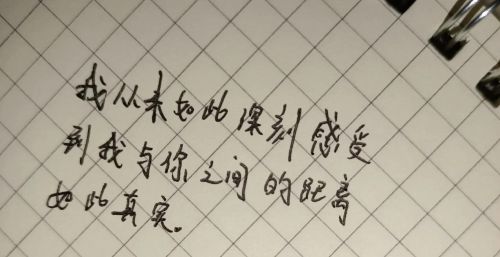 我从来如此深刻感受
到我与你之间的距离
如此真实。